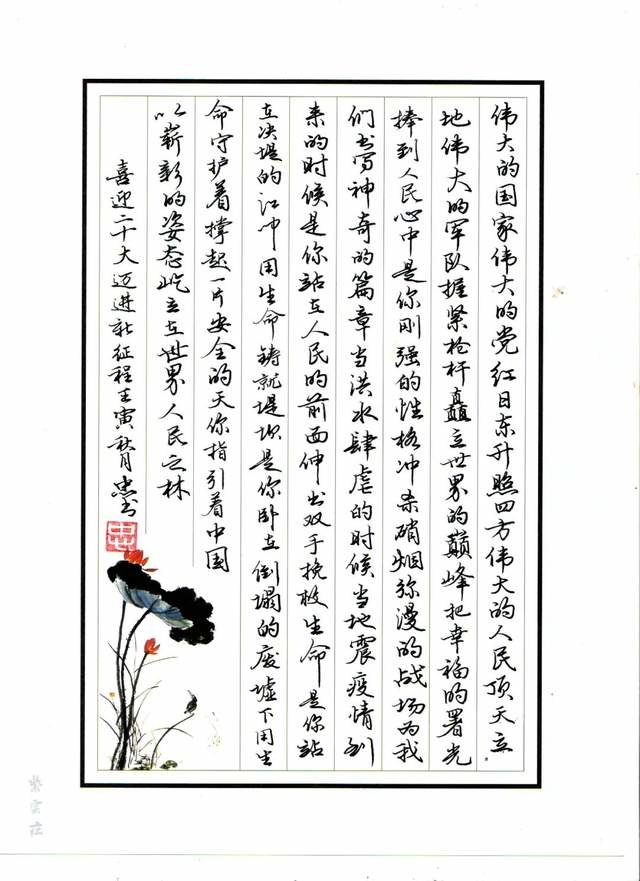 伟大的国家伟大的党红日东升照四方伟大的人民顶天立
地伟大的军队握紧枪杆矗立世界的巅峰把幸福的署光
捧到人民心中是你刚强的性格冲杀硝烟弥漫的战场为我
们书写神奇的篇章当洪水肆虐的时候当地震疫情到
来的时候是你站在人民的前面伸出双手挽救生命是你站
在决堤的江中用生命铸就堤坝是你卧在倒塌的废墟下用生
命守护着撑起一片安全的天你指引着中国
以崭新的姿态屹立在世界人民之林
喜迎二十大迈进新征程壬寅秋月忠书
忠
紫云庄